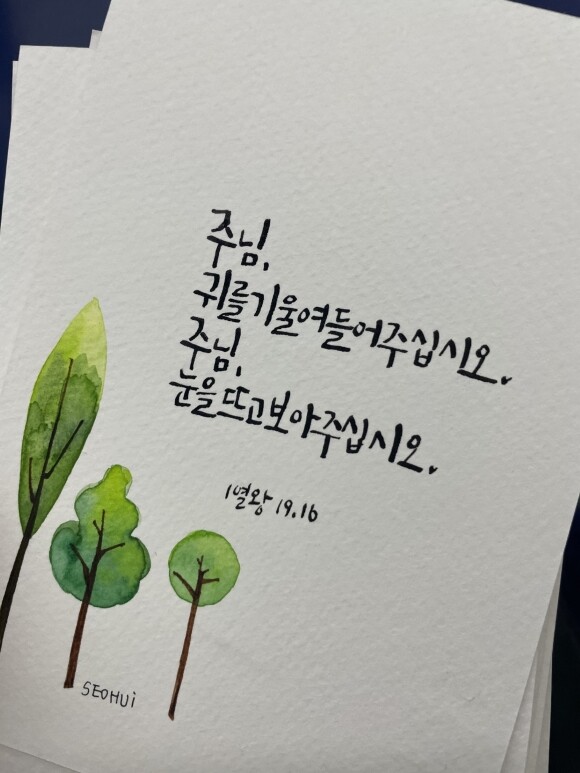 주님,
귀를기울여들어주십시오.
주님,
눈을뜨고보아주십시오.
1열왕 19.16
SEOHUi